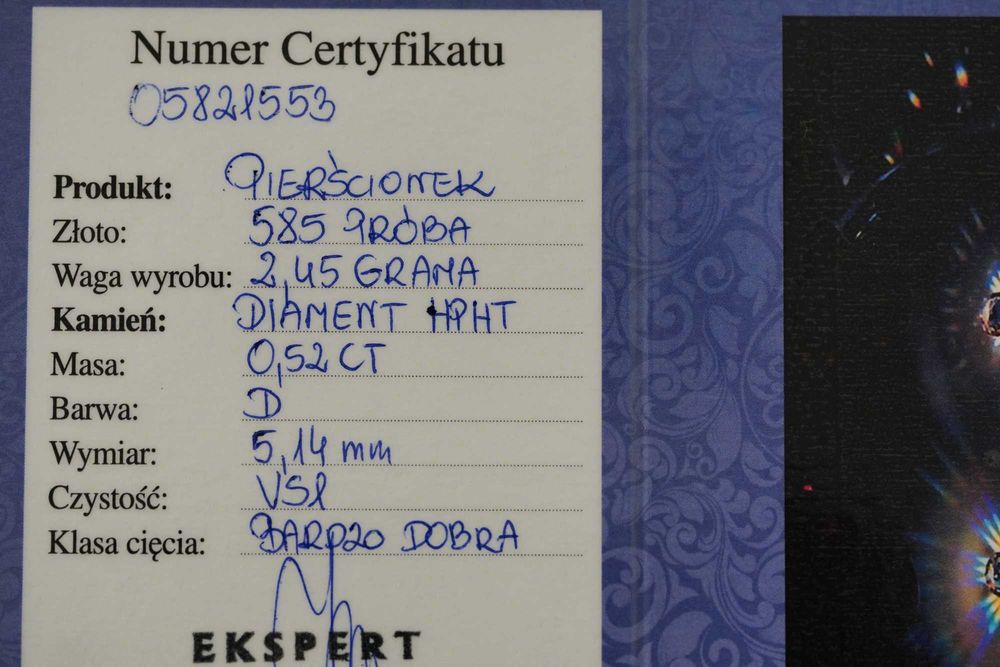 Numer Certyfikatu
05821553
Produkt: PIERŚCIONEK
Złoto: 585 PRÓBA
Waga wyrobu: 2,45 GRAMA
Kamień: DIAMENT HPHT
Masa: 0,52 CT
Barwa: D
Wymiar: 5,14 mm
Czystość: VS1
Klasa cięcia: BARDZO DOBRA
EKSPERT